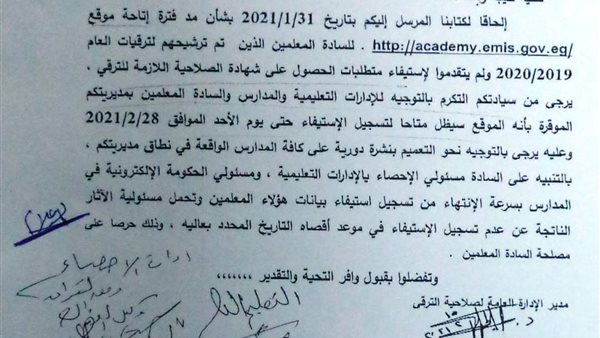 إلحاقا لكتابنا المرسل إليكم بتاريخ 2021/1/31 بشأن مد فترة إتاحة موقع
http://academy.emis.gov.eg/ . للسادة المعلمين الذين تم ترشيحهم لترقيات العام
2020/2019 ولم يتقدموا لإستيفاء متطلبات الحصول على شهادة الصلاحية اللازمة للترقي .
يرجى من سيادتكم التكرم بالتوجيه للإدارات التعليمية والمدارس والسادة المعلمين بمديريتكم
الموقرة بأنه الموقع سيظل متاحا لتسجيل الإستيفاء حتى يوم الأحد الموافق 2021/2/28
وعليه يرجى بالتوجيه نحو التعميم بنشرة دورية على كافة المدارس الواقعة في نطاق مديريتكم ،
بالتنبيه على السادة مسئولي الإحصاء بالإدارات التعليمية ، ومسئولي الحكومة الإلكترونية في
المدارس بسرعة الإنتهاء من تسجيل استيفاء بيانات هؤلاء المعلمين وتحمل مسئولية الآثار
الناتجة عن عدم تسجيل الإستيفاء في موعد أقصاه التاريخ المحدد بعاليه ، وذلك حرصا على
مصلحة السادة المعلمين .
وتفضلوا بقبول وافر التحية والتقدير ،،،،،،،
مدير الإدارة العامة لصلاحية الترقى
ادارة الاحصاء